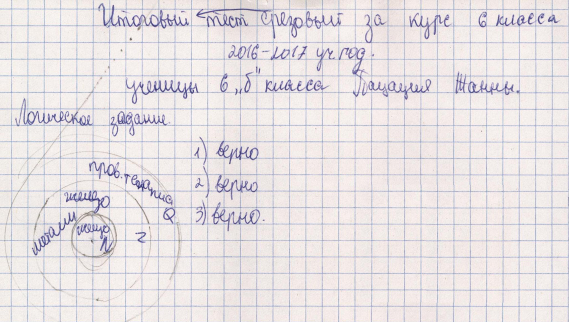 Итоговый тест срезовый за курс 6 класса
2016-2017 уч. год.
ученицы 6 „б" класса Пацация Жанны.
Логическое задание.
1) верно
2) верно
3) верно.
железо
металлы
железо
N
Z
Q